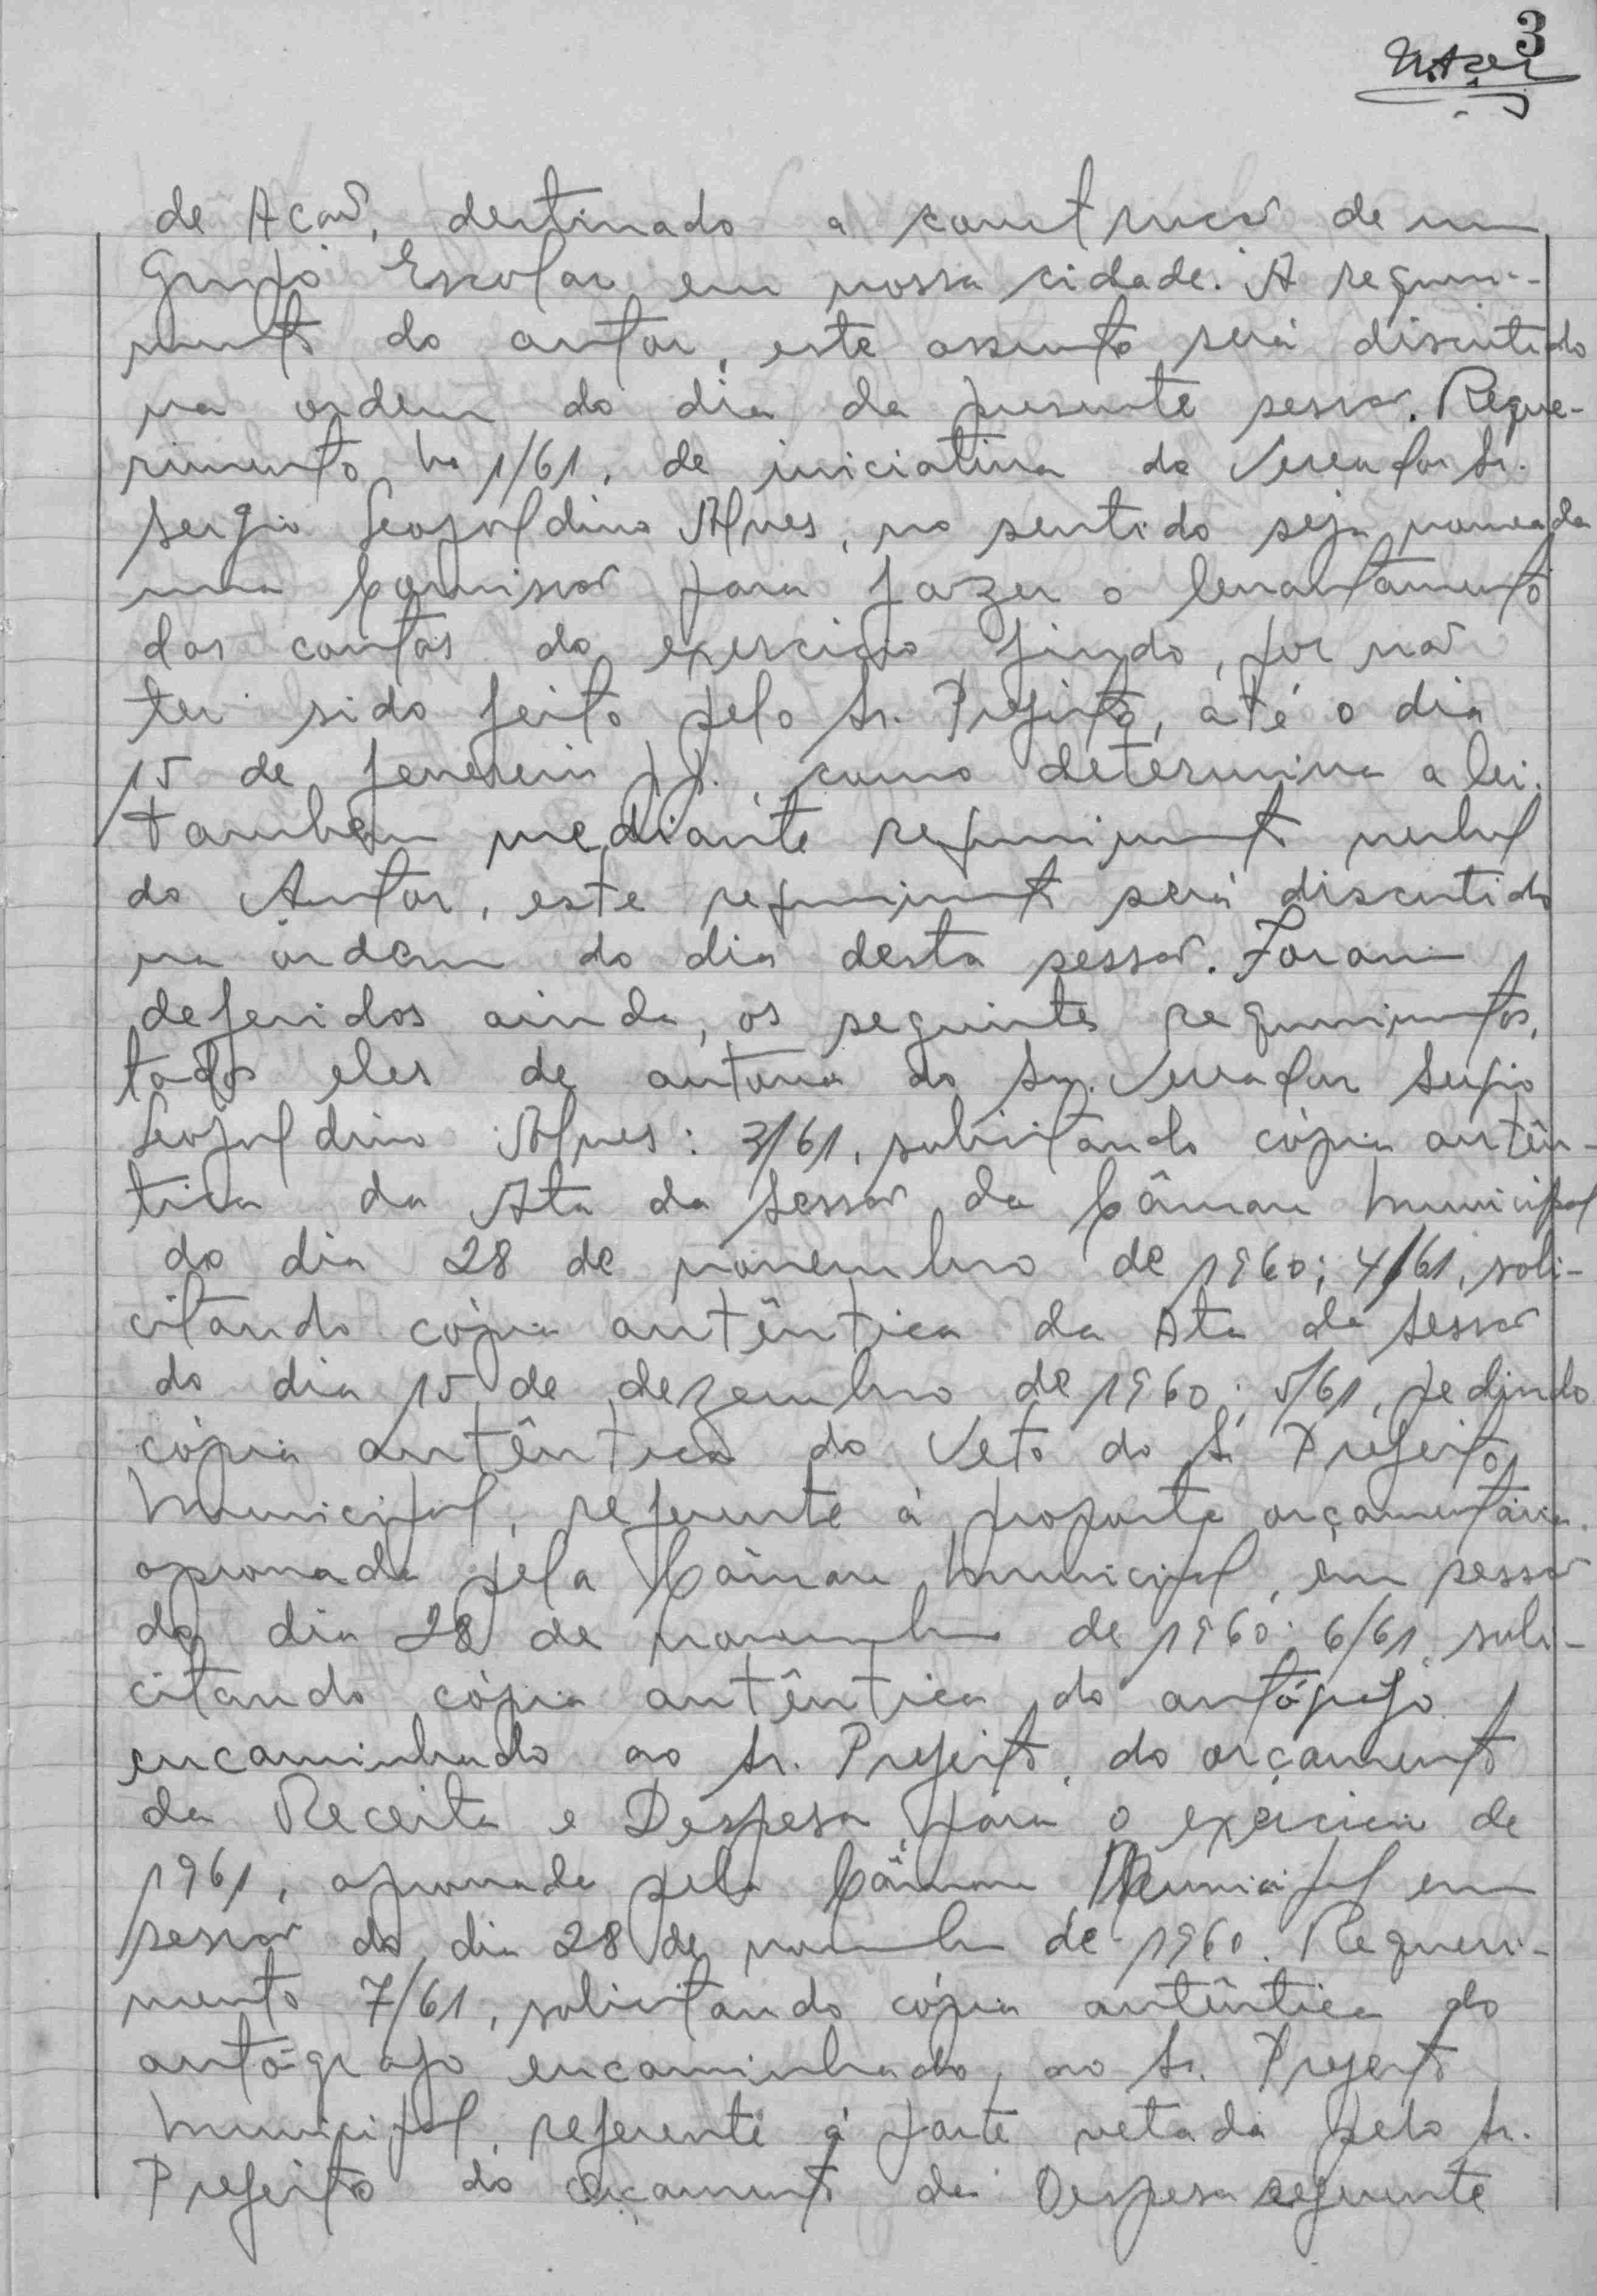 3
de Ação, destinado a construção de um
Grupo Escolar em nossa cidade. A requeri-
mento do autor, este assunto será discutido
na ordem do dia da presente sessão. Reque-
rimento no 1/61, de iniciativa do Vereador Sr.
Sergio Leopoldino Alves, no sentido seja nomeada
uma Comissão para fazer o levantamento
das contas do exercicio findo, por não
ter sido feito pelo Sr. Prefeito, até o dia
15 de fevereiro pp., como determina a lei.
Tambem mediante requerimento verbal
do Autor, este requerimento será discutido
na ordem do dia desta sessão. Foram
deferidos ainda, os seguintes requerimentos,
todos eles de autoria do Sr. Vereador Sergio
Leopoldino Alves: 3/61, solicitando cópia autên-
tica da Ata da Sessão da Câmara Municipal
do dia 28 de novembro de 1960; 4/61, soli-
citando cópia autêntica da Ata da Sessão
do dia 15 de dezembro de 1960; 5/61, pedindo
cópia autêntica do Veto do Sr Prefeito
Municipal, referente á proposta orçamentária
aprovada pela Câmara Municipal, em sessão
do dia 28 de novembro de 1960; 6/61, soli-
citando cópia autêntica do autógrafo
encaminhado ao Sr. Prefeito, do orçamento
da Receita e Despesa para o exercicio de
1961, aprovada pela Câmara Municipal em
sessão do dia 28 de novembro de 1960. Requeri-
mento 7/61, solicitando cópia autêntica do
autógrafo encaminhado, ao Sr. Prefeito
Municipal, referente á parte vetada pelo Sr.
Prefeito do orçamento da Despesa referente